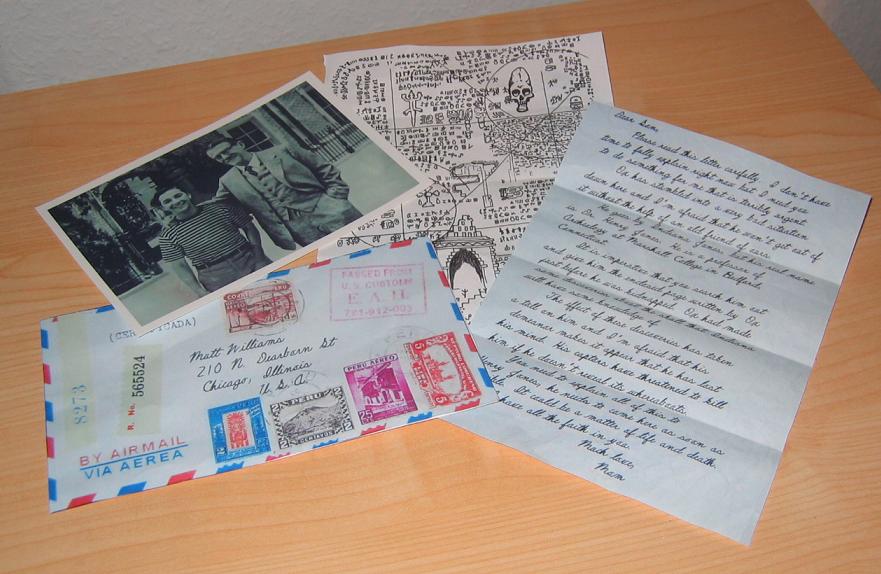 (CERTIFICADA)
PASSED FROM
U.S. CUSTOMS
8273
R. No. 565524
Matt Williams
210 N. Dearborn St
Chicago, Illinois
U.S.A.
BY AIRMAIL
VIA AEREA
PERU
CENTAVOS
PERU AEREO
25
5
Dear Son,
Please read this letter carefully, I don't have
time to fully explain right now but I need you
to do something for me that is terribly urgent
Ox has stumbled into a very bad situation
down here and I'm afraid that he won't get out of
it without the help of an old friend of ours.
He goes by Indiana Jones, but his real name
is Dr. Henry Jones. He is a professor of
Archeology at Marshall College in Bedford,
Connecticut.
It is imperative that you search him out
and give him the enclosed page written by Ox
just before he was kidnapped. Ox had made
some
The effect of these discoveries has taken
a toll on him and I'm afraid that his
demeanor makes it appear that he has lost
his mind. His captors have threatened to kill
him if he doesn't reveal its
You need to explain all of this to
Henry Jones, he needs to come here as soon as
It could be a matter of life and death.
have all the faith in you.
Much love,
Mom